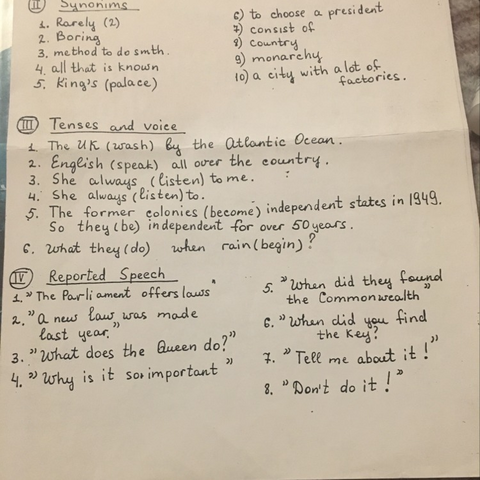 II Synonims
1. Rarely (2)
2. Boring
3. method to do smth.
4. all that is known
5. King's (palace)
6) to choose a president
7) consist of
8) country
9) monarchy
10) a city with a lot of
factories.
III Tenses and voice
1. The UK (wash) by the Atlantic Ocean.
2. English (speak) all over the country.
3. She always (listen) to me.
4. She always (listen) to.
5. The former colonies (become) independent states in 1949.
So they (be) independent for over 50 years.
6. What they (do) when rain (begin)?
IV Reported Speech
1. "The Parliament offers laws"
2. "A new law was made
last year."
3. "What does the Queen do?"
4. "Why is it so important"
5. "When did they found
the Commonwealth"
6. "When did you find
the key?
7. "Tell me about it!"
8. "Don't do it!"